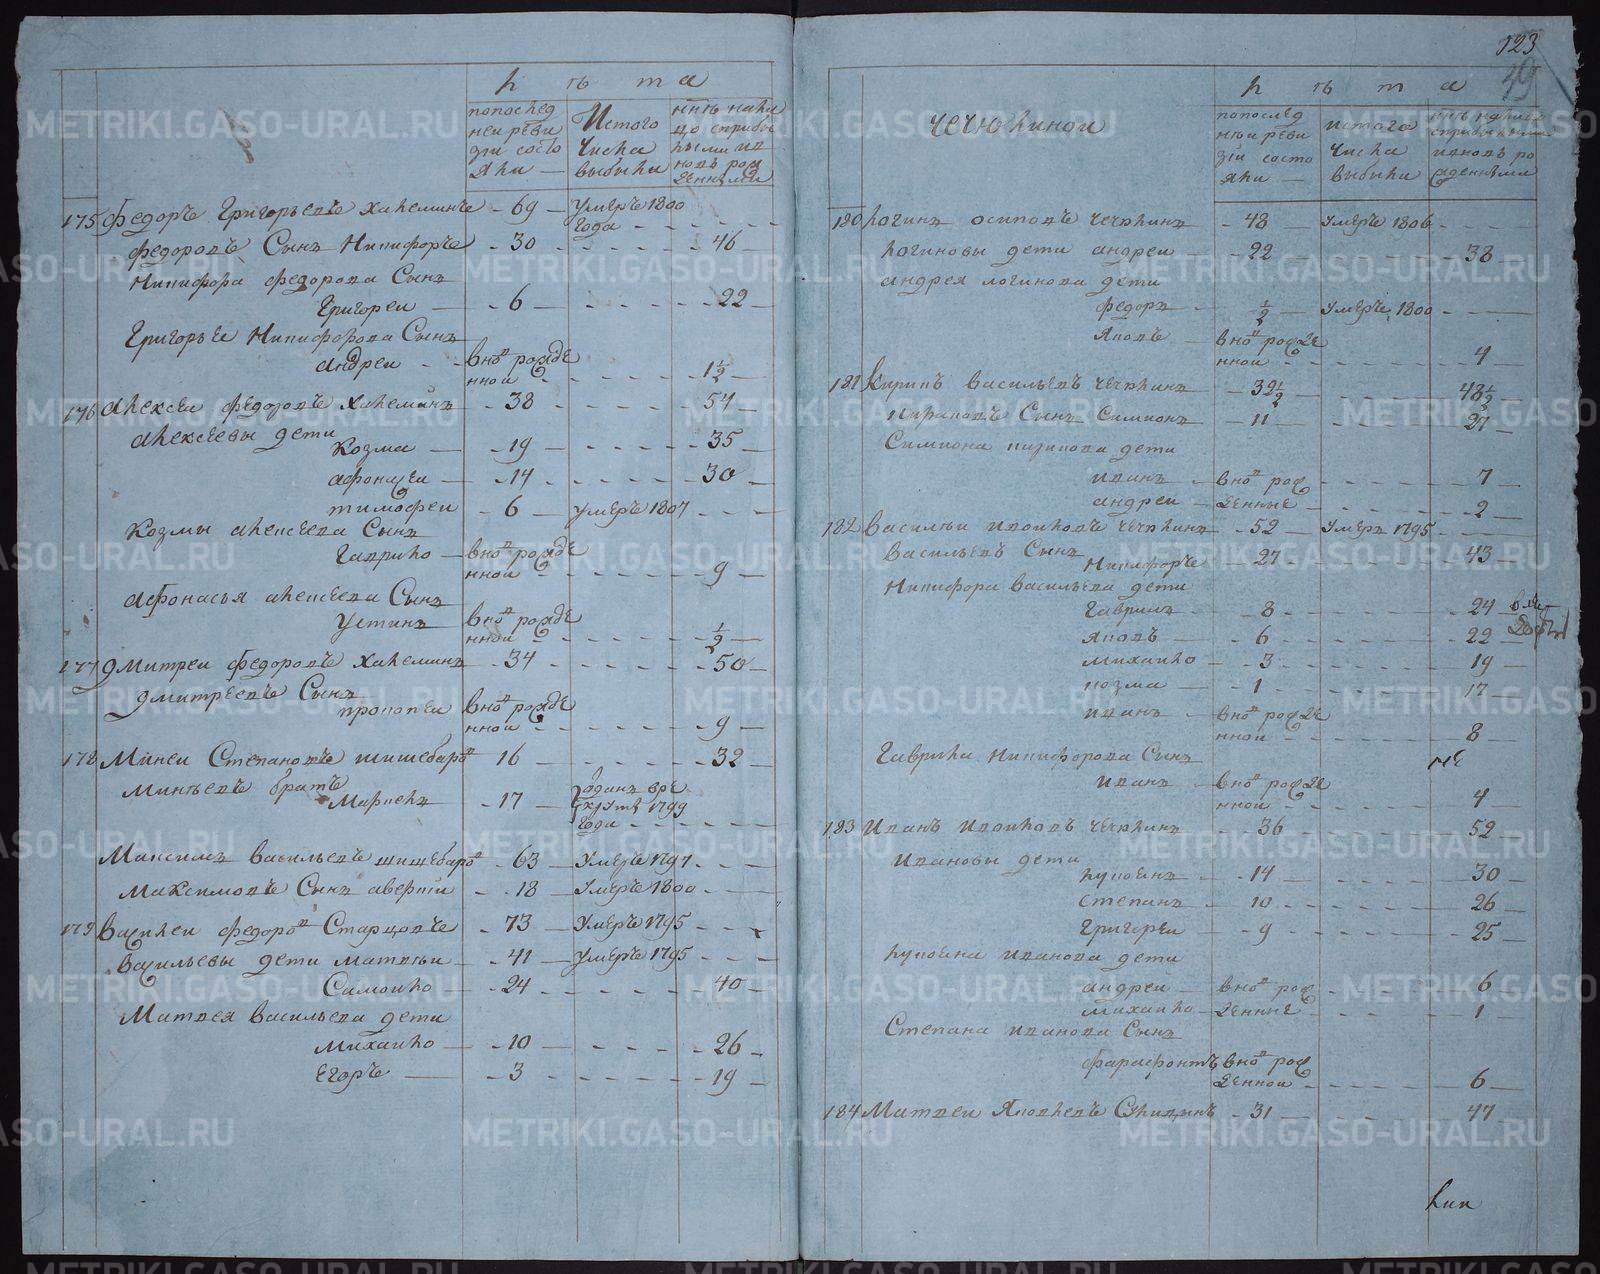 л ѣ т а
попослед
ней реви
зіи состо
яли
Истого
числа
выбыли
175 Федоръ Григорьевъ Халеминъ - 69 - Умеръ 1800
Года
Федоровъ Сынъ Никифоръ - 30 46
Никифора Федорова Сынъ
Григореи - 6 - 22
Григорья Никифорова Сынъ
Андреи вновь рожде
нной 1½
176 Алексеи Федоровъ Халеминъ - 38 54
Алексеевы дети
Козма - 19 35
Афонасеи - 14 30
Тимофеи - 6 Умеръ 1807
Козмы Алексеева Сынъ
Гаврило вновь рожде
нной 9
Афонасья Алексеева Сынъ
Устинъ вновь рожде
нной ½
177 Дмитреи Федоровъ Халеминъ - 34 50
Дмитреевъ Сынъ
Прокопеи вновь рожде
нной 9
178 Минеи Степановъ 16 32
Минеевъ братъ
17 Отданъ врѣ
круты 1799
Года
Максимъ Васильевъ 63 - Умеръ 1797
Максимовъ Сынъ Аверкіи - 18 - Умеръ 1800
179 Василеи Федоровъ Старцовъ - 73 - Умеръ 1795
Васильевы дети Матвеи - 41 - Умеръ 1795
Самоило - 24 40
Матвея Васильева дети
Михаило - 10 26
Егоръ - 3 19
123
49
л ѣ т а
попослед
ней реви
зіи состо
яли
истого
числа
выбыли
180 Логинъ Осиповъ Чечюлинъ - 48 Умеръ 1806
Логиновы дети Андреи - 22 38
Андрея Логинова дети
Федоръ ½ Умеръ 1800
Яковъ вновь рожде
нной 4
181 Кирилъ Васильевъ Чечюлинъ - 32½ 48½
Кириловъ Сынъ Симионъ - 11 27
Симиона Кирилова дети
Иванъ вновь рож 7
Андреи денные 2
182 Василеи Чечюлинъ - 52 Умеръ 1795
Васильевъ Сынъ
Никифоръ - 27 43
Никифора Васильева дети
Гаврилъ - 8 24
Яковъ - 6 22
Михаило - 3 19
Козма - 1 17
Иванъ вновь рожде
нной 8
Гаврила Никифорова Сынъ
Иванъ вновь рожде
нной 4
183 Иванъ Чечюлинъ - 36 52
Ивановы дети
14 30
Степанъ - 10 26
Григореи - 9 25
Ивановa дети
Андреи вновь рож 6
Михаило денные 1
Степана Иванова Сынъ
Фарафонтъ вновь рож
денной 6
184 Матвеи Яковлевъ 31 47